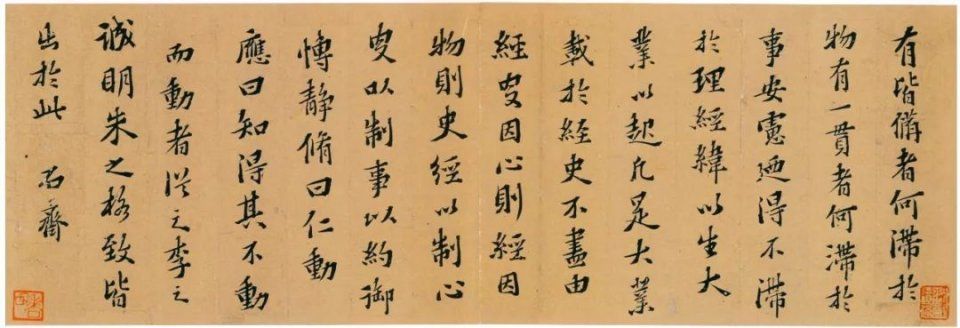 有皆備者何滯於
物有一貫者何滯於
事安慮廼得不滯
於理經緯以生大
業以起凡是大業
載於經史不盡由
經史因心則經因
物則史經以制心
史以制事以約御
博靜脩曰仁動
應曰知得其不動
而動者從之李之
誠明朱之格致皆
出於此 石齋